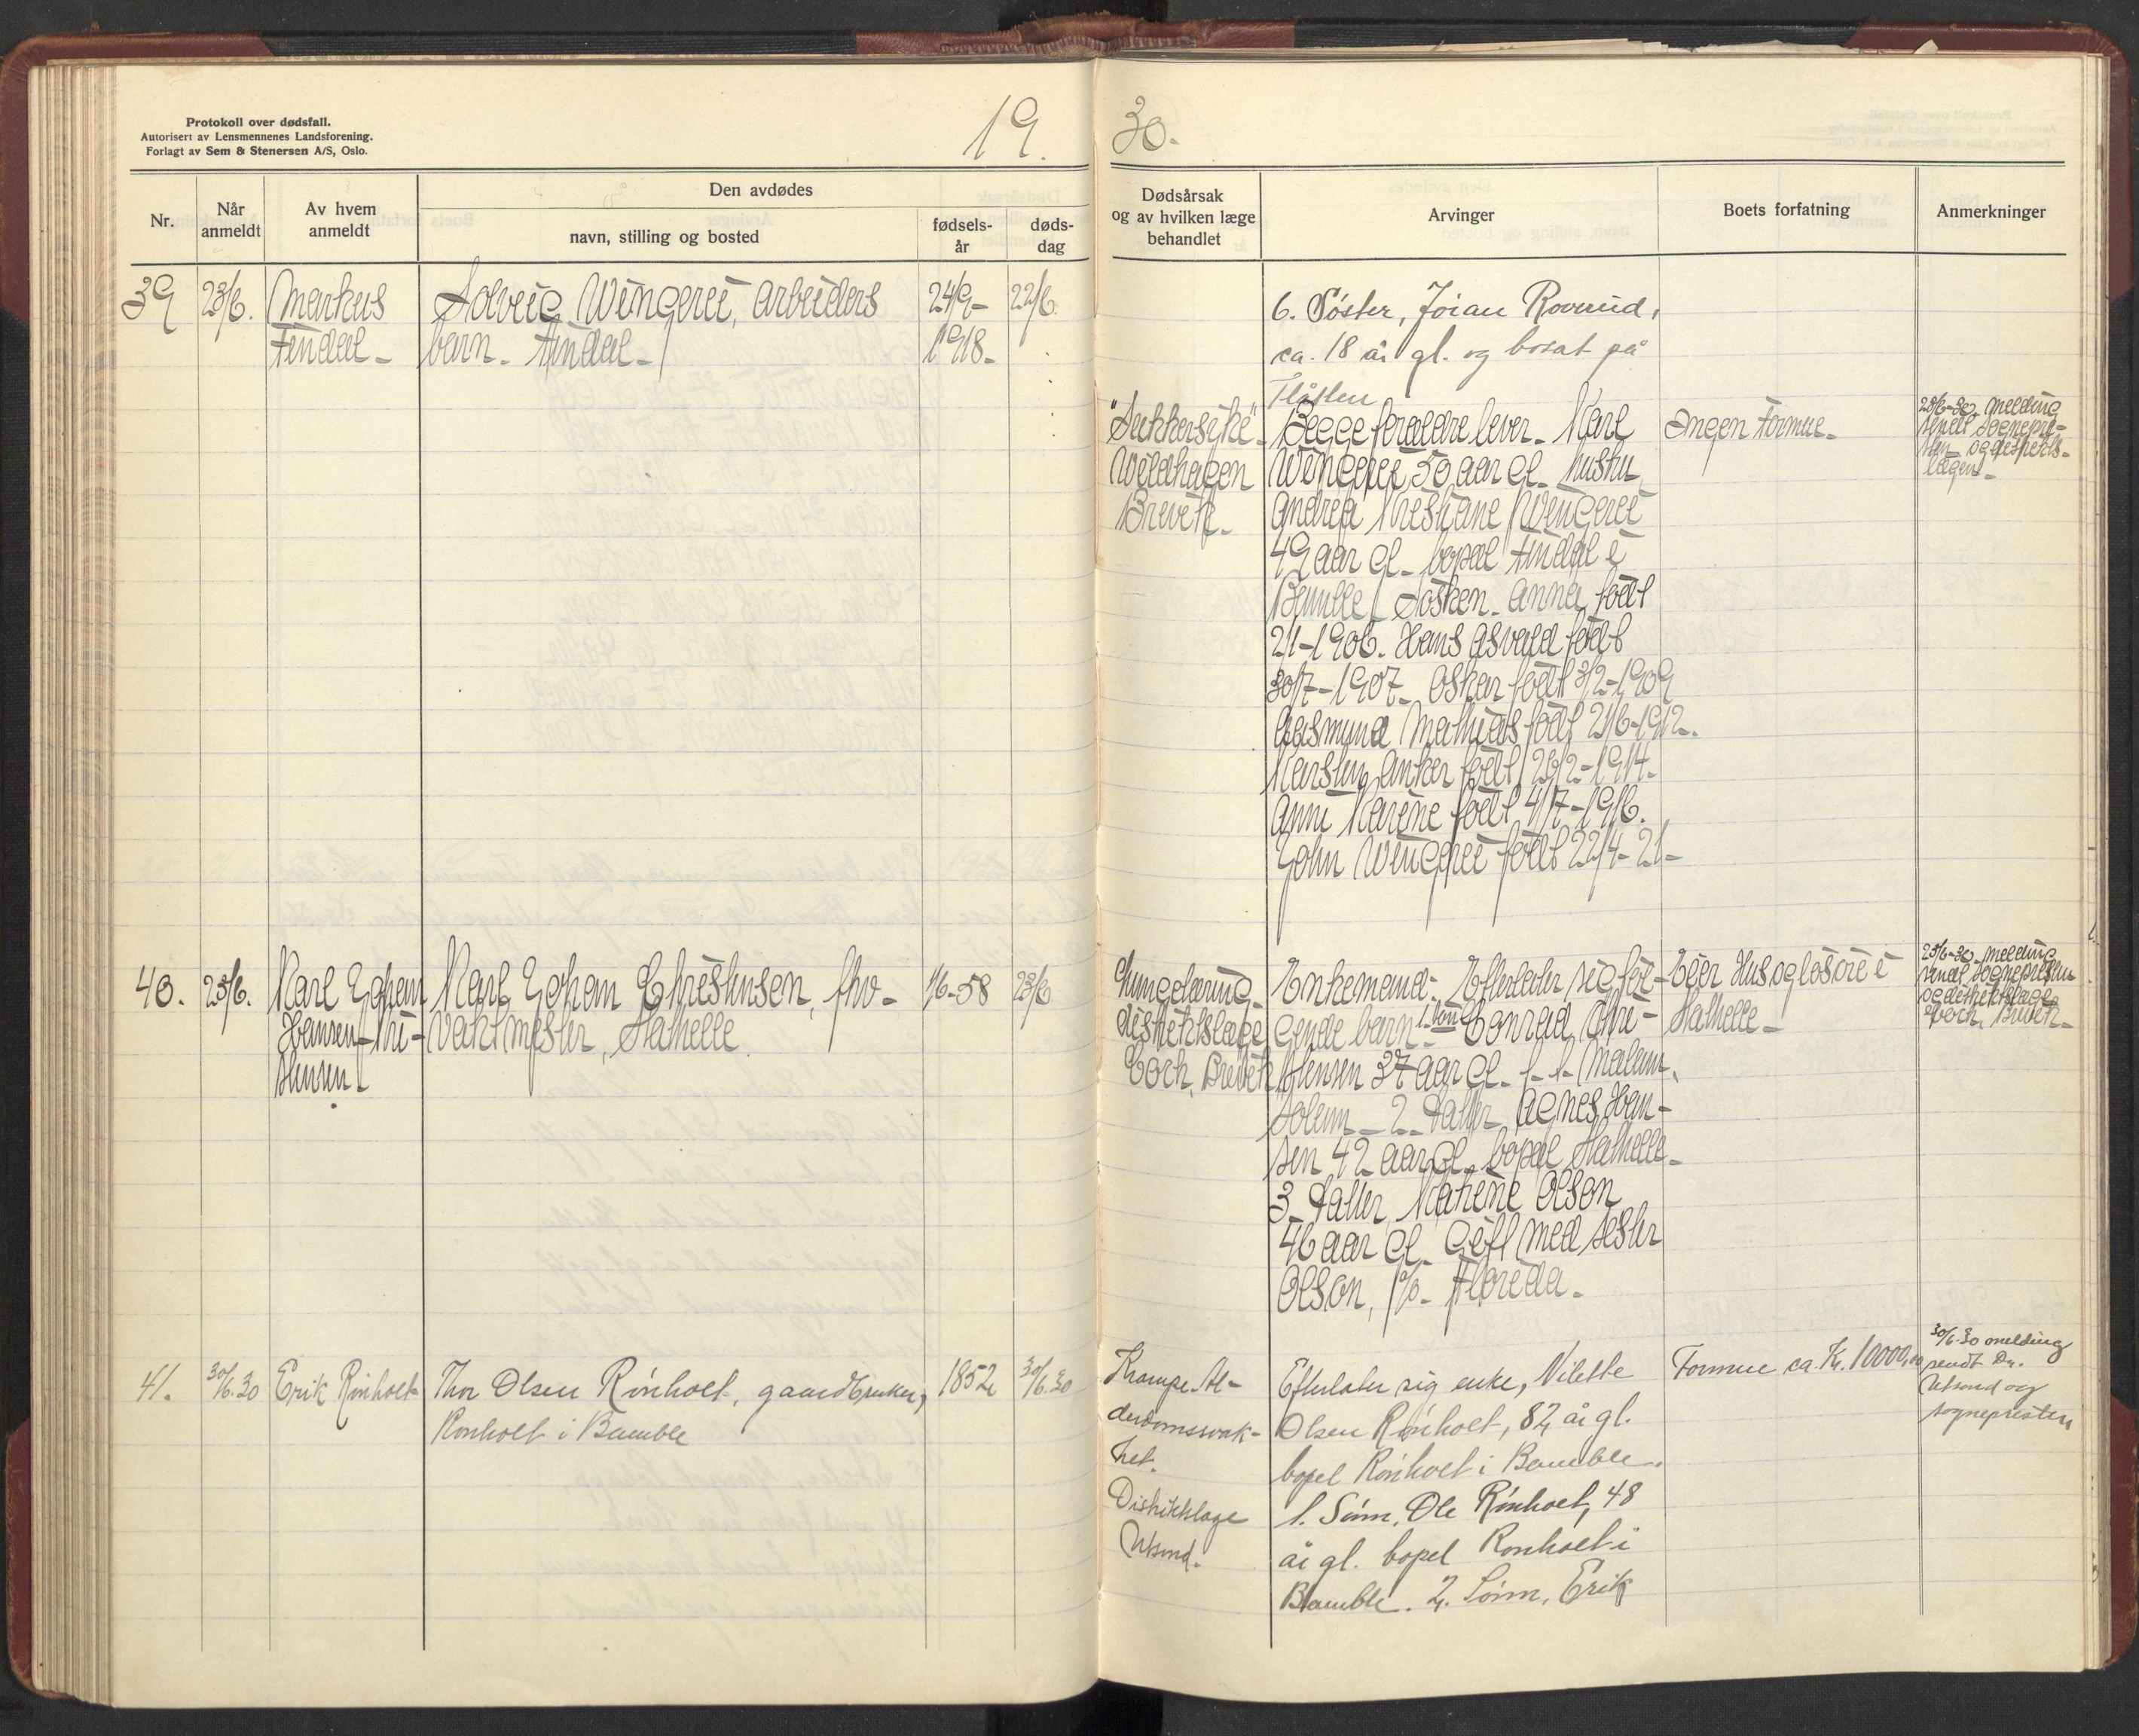 Protokoll over dødsfall.
Autorisert av Lensmennenes Landsforening.
Forlagt av Sem & Stenersen A/S, Oslo.
19.
30.
Nr.
Når
anmeldt
Av hvem
anmeldt
Den avdødes
navn, stilling og bosted
fødsels-
år
døds-
dag
Dødsårsak
og av hvilken læge
behandlet
Arvinger
Boets forfatning
Anmerkninger
39
23/6.
Markus
Findal
Solveig Wingerei, arbeiders
barn. Findal
24/9-
1918-
22/6.
6. Søster, Joran Roverud,
ca. 18 år gl. og bosat på
"Sukkersyke"
Brevik
Begge forældre lever. Karl
Wingerei 50 aar gl. hustru
Andrea Kristiane Wingerei
49 aar gl. bopæl Findal i
Bamble. Søsken. Anna født
2/1-1906. Hans Asvald født
30/7-1907. Oskar født 3/2-1909
Aasmund Mathias født 21/6-1912.
Karsten Anker født 26/2-1914.
Anne Karine født 4/7-1916.
John Wingerei født 22/4-21-
Ingen formue
25/6-30. melding
sendt sognepre-
sten og distrikts-
lægen
40.
25/6.
Karl Johan
Hansen Kri-
stensen
Karl Johan Christensen, fhv.
Vaktmester, Stathelle
1/6-58
23/6
distriktslæge
Coch, Brevik
Enkemand. Efterlater sig føl-
gende barn. 1. Søn Conrad Chri-
stensen 37 aar gl.
2. Datter Agnes Han-
sen 42 aar gl. bopæl Stathelle
3. Datter, Katrine Olson
46 aar gl. Gift med Jester
Olson, p/o. Florida.
Eier Hus og løsøre i
Stathelle
25/6-30. melding
sendt sognepresten
og distriktslæge
Coch, Brevik
41.
30/6.30
Erik Rønholt
Thor Olsen Rønholt, gaardbruker,
Rønholt i Bamble
1852
30/6.30
Krampe. Al-
derdomssvak-
het.
Distriktslæge
Efterlater sig enke, Vilette
Olsen Rønholt, 82 år gl.
bopel Rønholt i Bamble.
1. Sønn, Ole Rønholt, 48
år gl. bopel Rønholt i
Bamble. 2. Sønn, Erik
Formue ca. Kr. 10000,00
30/6.30 melding
sendt Dr.
og
sognepresten